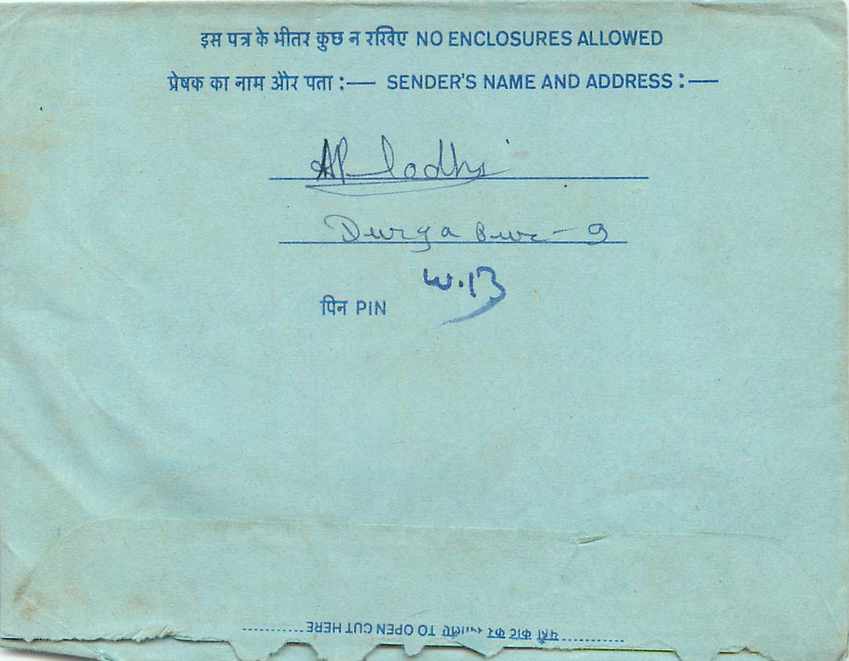 इस पत्र के भीतर कुछ न रखिए NO ENCLOSURES ALLOWED
प्रेषक का नाम और पता :— SENDER'S NAME AND ADDRESS :—
AP Lodhi
Durgapur - 9
W.B
पिन PIN
यहाँ काट कर खोलिए TO OPEN CUT HERE